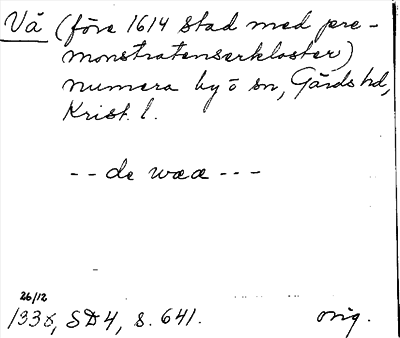 Vä (före 1614 stad med pre-
monstratenserkloster)
numera by o sn, Gärds hd,
Krist. l.
-- de wææ ---
26/12
1338, SD4, s. 641. orig.